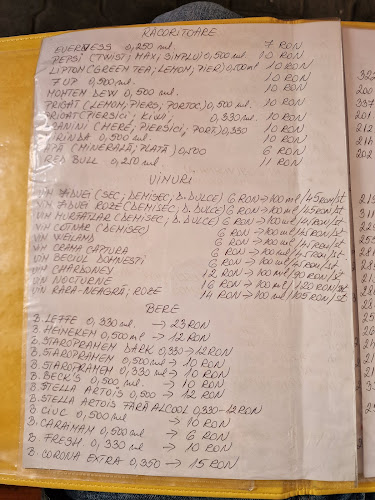 RACORITOARE
EVERVESS 0,250 ml. 7 RON
PEPSI (TWIST; MAX; SIMPLU) 0,500 ml. 10 RON
LIPTON (GREEN TEA; LEMON; PIER) 0,500 ml 10 RON
7 UP 0,500 ml. 10 RON
MONTEN DEW 0,500 ml. 10 RON
PRIGAT (LEMON, PIERS; PORTOC) 0,500 ml. 10 RON
PRIGAT (PIERSICI; KIWI; 0,330 ml. 10 RON
GRANINI (MERE; PIERSICI; PORT) 0,330 10 RON
MIRINDA 0,500 ml. 10 RON
APĂ (MINERALĂ; PLATĂ) 0,500 6 RON
RED BULL 0,250 ml. 11 RON
VINURI
VIN ZĂDUG (SEC; DEMISEC; D.DULCE) 6 RON→100 ml/45 RON/st
VIN ROZE (DEMISEC; D. DULCE) 6 RON→100 ml/45 RON/st
VIN MURFATLAR (DEMISEC; D. DULCE) 6 RON→100 ml/45 RON/st
VIN COTNAR (DEMISEC) 6 RON→100 ml/45 RON/st
VIN WEILAND 6 RON→100 ml/45 RON/st
VIN CRAMA CAPTURA 6 RON→100 ml/45 RON/st
VIN BECIUL DOMNESTI 6 RON→100 ml/45 RON/st
VIN CHARDONEY 12 RON→100 ml/90 RON/st
VIN NOCTURNE 16 RON→100 ml/120 RON/st
VIN RARA-NEAGRĂ; ROZE 14 RON→100 ml/105 RON/st
BERE
B. LEFFE 0,330 ml. → 23 RON
B. HEINEKEN 0,500 ml → 12 RON
B. STAROPRAMEN DARK 0,330→12 RON
B. STAROPRAMEN 0,500 ml → 10 RON
B. STAROPRAMEN 0,330 ml → 10 RON
B. BECK'S 0,500 ml. → 10 RON
B. STELLA ARTOIS 0,500 → 12 RON
B. STELLA ARTOIS FARA ALCOOL 0,330-12 RON
B. CIUC 0,500 ml → 10 RON
B. CARAIMAN 0,500 ml → 6 RON
B. FRESH 0,330 ml → 10 RON
B. CORONA EXTRA 0,350 → 15 RON